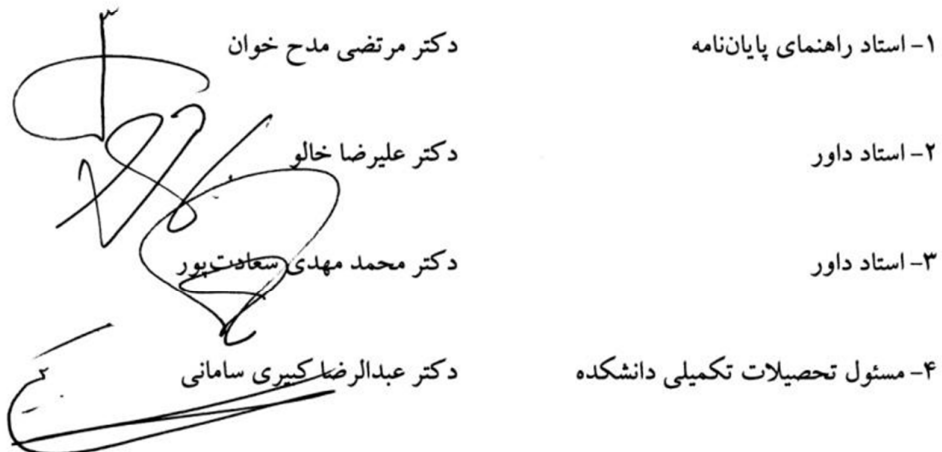 ۱- استاد راهنمای پایان‌نامه دکتر مرتضی مدح خوان
۲- استاد داور دکتر علیرضا خالو
۳- استاد داور دکتر محمد مهدی سعادت‌پور
۴- مسئول تحصیلات تکمیلی دانشکده دکتر عبدالرضا کبیری سامانی